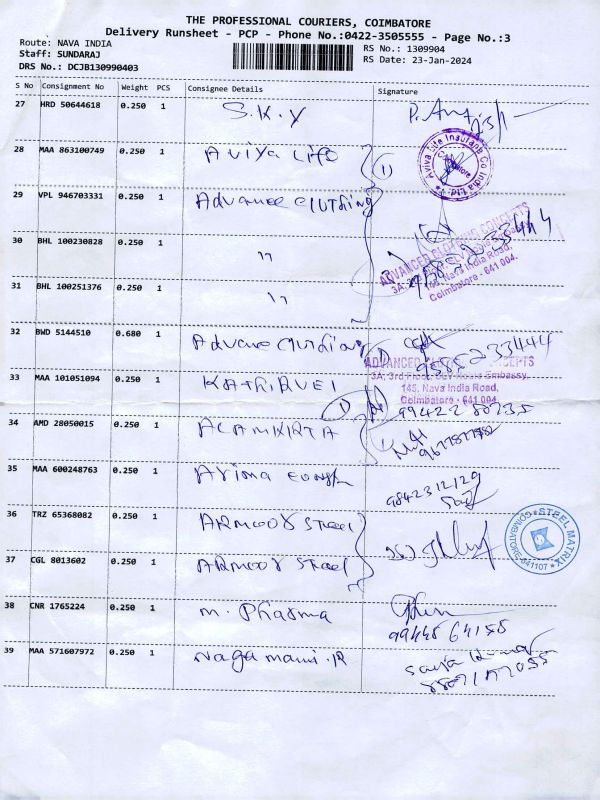 THE PROFESSIONAL COURIERS, COIMBATORE
Delivery Runsheet - PCP - Phone No.:0422-3505555 - Page No.:3
Route: NAVA INDIA
Staff: SUNDARAJ
DRS No.: DCJB130990403
RS No.: 1309904
RS Date: 23-Jan-2024
S No Consignment No Weight PCS Consignee Details Signature
27 HRD 50644618 0.250 1 S.K.Y
28 MAA 863100749 0.250 1 Aviva Life
Aviva Life Insurance Co India
29 VPL 946703331 0.250 1 Advance Cluthing
30 BHL 100230828 0.250 1 "
ADVANCED CLOTHING CONCEPTS
Nava India Road,
Coimbatore - 641 004.
31 BHL 100251376 0.250 1 "
32 BWD 5144510 0.680 1 Advance Cluthing 9585233444
ADVANCED CLOTHING CONCEPTS
3A, 3rd Floor, Embassy,
145, Nava India Road,
Coimbatore - 641 004
33 MAA 101051094 0.250 1 KATHIRVEL
34 AMD 28050015 0.250 1 ALAMKRITA
35 MAA 600248763 0.250 1 9842312129
36 TRZ 65368082 0.250 1 ARMOOR Steel
STEEL MATRIX
COIMBATORE-641107
37 CGL 8013602 0.250 1 ARMOOR Steel
38 CNR 1765224 0.250 1 M. Pharma
39 MAA 571607972 0.250 1 Nagamani.R